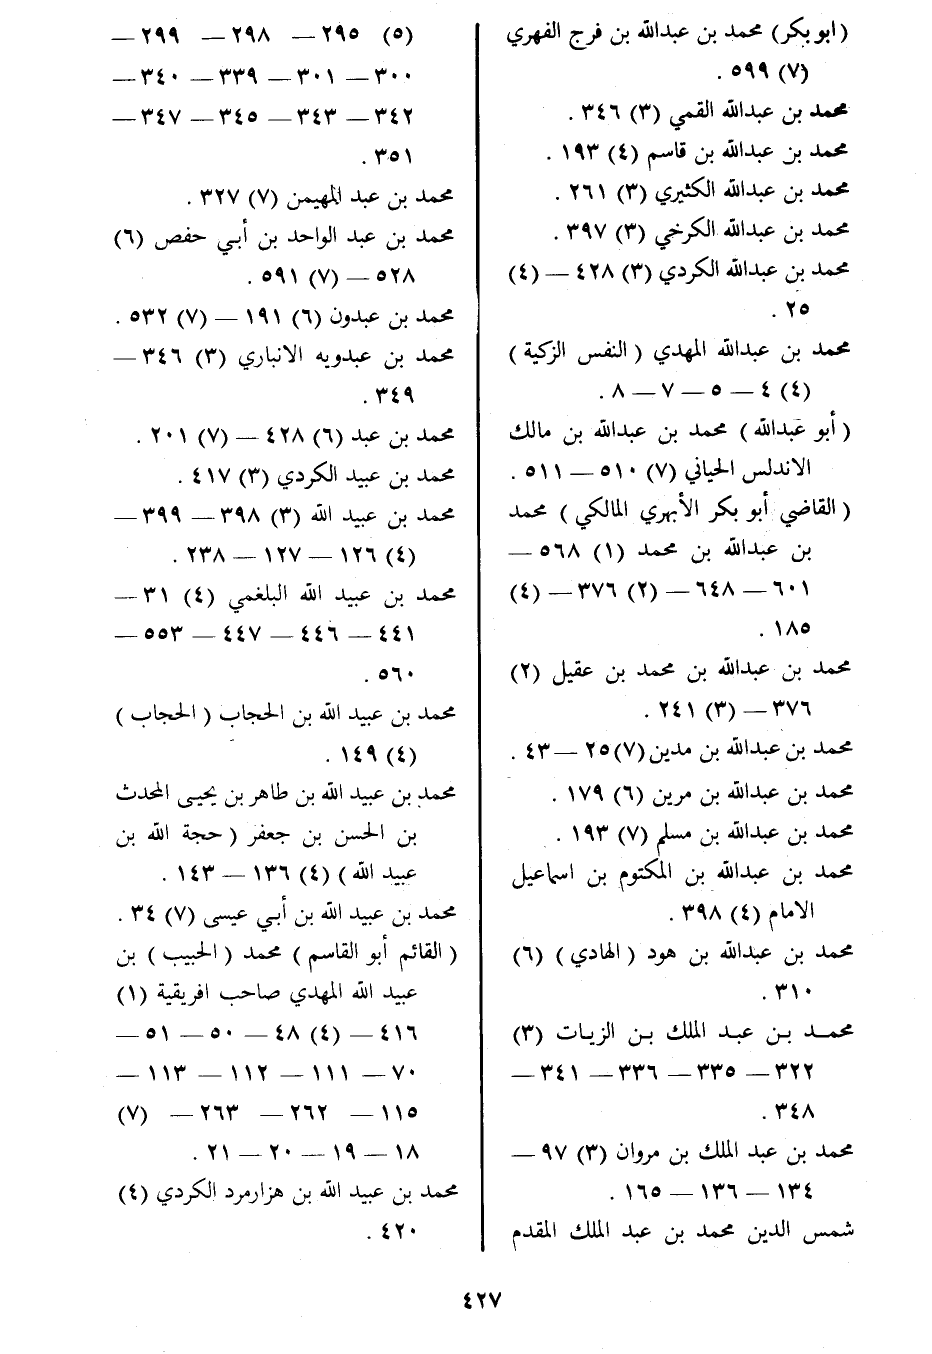 (ابو بكر) محمد بن عبدالله بن فرج الفهري
(٧) ٥٩٩ .
محمد بن عبدالله القمي (٣) ٣٤٦ .
محمد بن عبدالله بن قاسم (٤) ١٩٣ .
محمد بن عبدالله الكثيري (٣) ٢٦١ .
محمد بن عبدالله الكرخي (٣) ٣٩٧ .
محمد بن عبدالله الكردي (٣) ٤٢٨ — (٤)
٢٥ .
محمد بن عبدالله المهدي ( النفس الزكية )
(٤) ٤ — ٥ — ٧ — ٨ .
( أبو عبدالله ) محمد بن عبدالله بن مالك
الاندلس الحياني (٧) ٥١٠ — ٥١١ .
( القاضي أبو بكر الأبهري المالكي ) محمد
بن عبدالله بن محمد (١) ٥٦٨ —
٦٠١ — ٦٤٨ — (٢) ٣٧٦ — (٤)
١٨٥ .
محمد بن عبدالله بن محمد بن عقيل (٢)
٣٧٦ — (٣) ٢٤١ .
محمد بن عبدالله بن مدين (٧) ٢٥ — ٤٣ .
محمد بن عبدالله بن مرين (٦) ١٧٩ .
محمد بن عبدالله بن مسلم (٧) ١٩٣ .
محمد بن عبدالله بن المكتوم بن اسماعيل
الامام (٤) ٣٩٨ .
محمد بن عبدالله بن هود ( الهادي ) (٦)
٣١٠ .
محمد بن عبد الملك بن الزيات (٣)
٣٢٢ — ٣٣٥ — ٣٣٦ — ٣٤١ —
٣٤٨ .
محمد بن عبد الملك بن مروان (٣) ٩٧ —
١٣٤ — ١٣٦ — ١٦٥ .
شمس الدين محمد بن عبد الملك المقدم
(٥) ٢٩٥ — ٢٩٨ — ٢٩٩ —
٣٠٠ — ٣٠١ — ٣٣٩ — ٣٤٠ —
٣٤٢ — ٣٤٣ — ٣٤٥ — ٣٤٧ —
٣٥١ .
محمد بن عبد المهيمن (٧) ٣٢٧ .
محمد بن عبد الواحد بن أبي حفص (٦)
٥٢٨ — (٧) ٥٩١ .
محمد بن عبدون (٦) ١٩١ — (٧) ٥٣٢ .
محمد بن عبدويه الانباري (٣) ٣٤٦ —
٣٤٩ .
محمد بن عبد (٦) ٤٢٨ — (٧) ٢٠١ .
محمد بن عبيد الكردي (٣) ٤١٧ .
محمد بن عبيد الله (٣) ٣٩٨ — ٣٩٩ —
(٤) ١٢٦ — ١٢٧ — ٢٣٨ .
محمد بن عبيد الله البلغمي (٤) ٣١ —
٤٤١ — ٤٤٦ — ٤٤٧ — ٥٥٣ —
٥٦٠ .
محمد بن عبيد الله بن الحجاب ( الحجاب )
(٤) ١٤٩ .
محمد بن عبيد الله بن طاهر بن يحيى المحدث
بن الحسن بن جعفر ( حجة الله بن
عبيد الله ) (٤) ١٣٦ — ١٤٣ .
محمد بن عبيد الله بن أبي عيسى (٧) ٣٤ .
( القائم أبو القاسم ) محمد ( الحبيب ) بن
عبيد الله المهدي صاحب افريقية (١)
٤١٦ — (٤) ٤٨ — ٥٠ — ٥١ —
٧٠ — ١١١ — ١١٢ — ١١٣ —
١١٥ — ٢٦٢ — ٢٦٣ — (٧)
١٨ — ١٩ — ٢٠ — ٢١ .
محمد بن عبيد الله بن هزارمرد الكردي (٤)
٤٢٠ .
٤٢٧